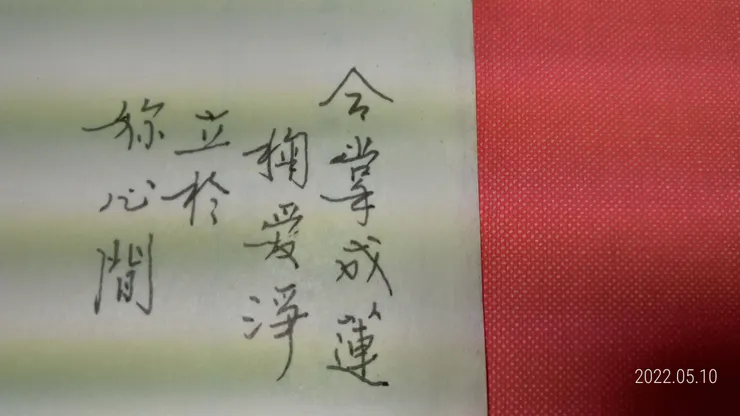 合掌成蓮
掬愛淨
立於
妳心間
2022.05.10